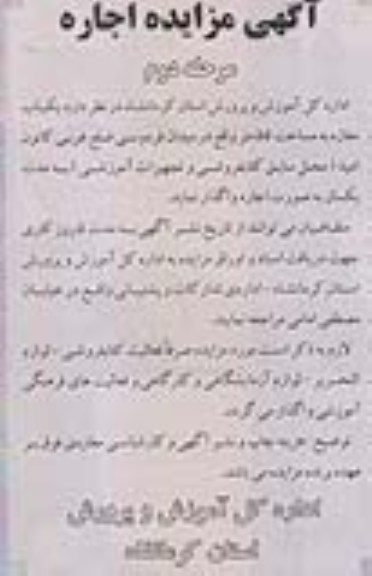 آگهی مزایده اجاره
مرحله دوم
اداره کل آموزش و پرورش استان کرمانشاه در نظر دارد یکباب
مغازه به مساحت واقع در میدان فردوسی ضلع غربی کانون
محل سابق کتابفروشی و تجهیزات آموزشی به مدت
یکسال به صورت اجاره واگذار نماید.
متقاضیان می توانند از تاریخ نشر آگهی به مدت روز کاری
جهت دریافت اسناد و اوراق مزایده به اداره کل آموزش و پرورش
استان کرمانشاه - اداره تدارکات و پشتیبانی واقع در خیابان
مصطفی امامی مراجعه نمایند.
لازم به ذکر است مورد مزایده صرفاً فعالیت کتابفروشی - لوازم
التحریر - لوازم آزمایشگاهی و کارگاهی و فعالیت های فرهنگی
آموزشی واگذار می گردد.
توضیح: هزینه چاپ و نشر آگهی و کارشناسی مغازه فوق بر
عهده برنده مزایده می باشد.
اداره کل آموزش و پرورش
استان کرمانشاه